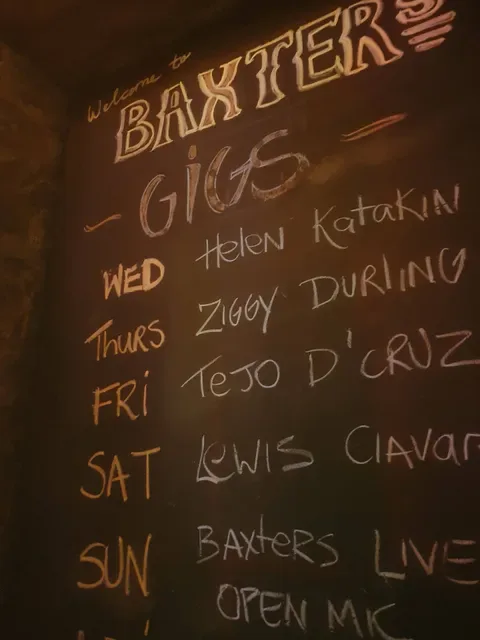 Welcome to
BAXTERS
GIGS
WED Helen Katakin
THURS ZIGGY DURLING
FRI TeJO D'CRUZ
SAT LEWIS
SUN BAXteRS LIVE
OPEN MIC